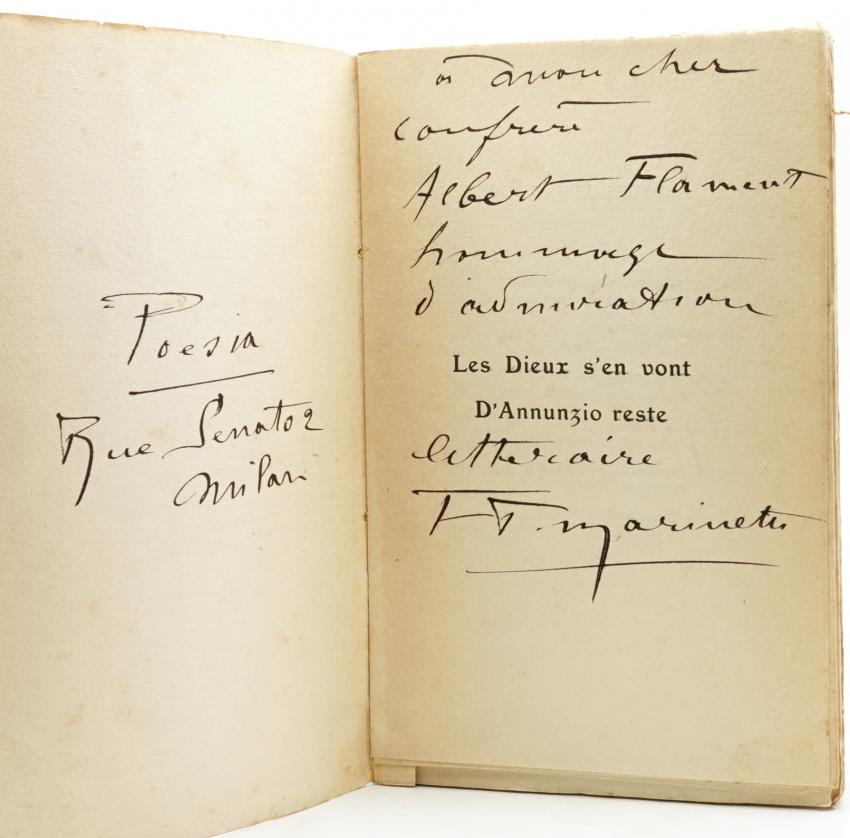 Poesia
Rue Senato 2
Milan
à mon cher
confrère
Albert Flament
hommage
d'admiration
Les Dieux s'en vont
D'Annunzio reste
litteraire
F T Marinetti